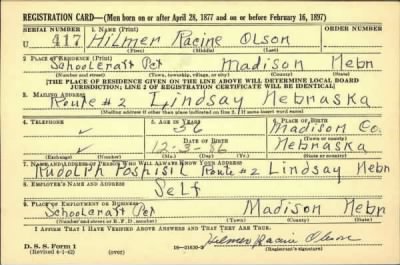 REGISTRATION CARD—(Men born on or after April 28, 1877 and on or before February 16, 1897)
SERIAL NUMBER 1. NAME (Print) ORDER NUMBER
U 417 Hilmer Racine Olson
(First) (Middle) (Last)
2. PLACE OF RESIDENCE (Print)
Schoolcraft Pct Madison Nebr
(Number and street) (Town, township, village, or city) (County) (State)
[THE PLACE OF RESIDENCE GIVEN ON THE LINE ABOVE WILL DETERMINE LOCAL BOARD
JURISDICTION; LINE 2 OF REGISTRATION CERTIFICATE WILL BE IDENTICAL]
3. MAILING ADDRESS
Route #2 Lindsay Nebraska
[Mailing address if other than place indicated on line 2. If same insert word same]
4. TELEPHONE 5. AGE IN YEARS 6. PLACE OF BIRTH
✓ 56 Madison Co.
DATE OF BIRTH (Town or county)
✓ 12-3-86 Nebraska
(Exchange) (Number) (Mo.) (Day) (Yr.) (State or country)
7. NAME AND ADDRESS OF PERSON WHO WILL ALWAYS KNOW YOUR ADDRESS
Rudolph Pospisil Route #2 Lindsay Nebr
8. EMPLOYER'S NAME AND ADDRESS
Self
9. PLACE OF EMPLOYMENT OR BUSINESS
Schoolcraft Pct Madison Nebr
(Number and street or R. F. D. number) (Town) (County) (State)
I AFFIRM THAT I HAVE VERIFIED ABOVE ANSWERS AND THAT THEY ARE TRUE.
D. S. S. Form 1 Hilmer Racine Olson
(Revised 4-1-42) (over) 16—21630-2 (Registrant's signature)